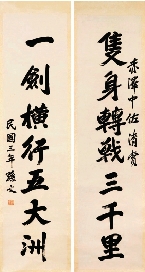 赤澤中佐清賞
隻身轉戰三千里
一劍橫行五大洲
民國三年 孫文